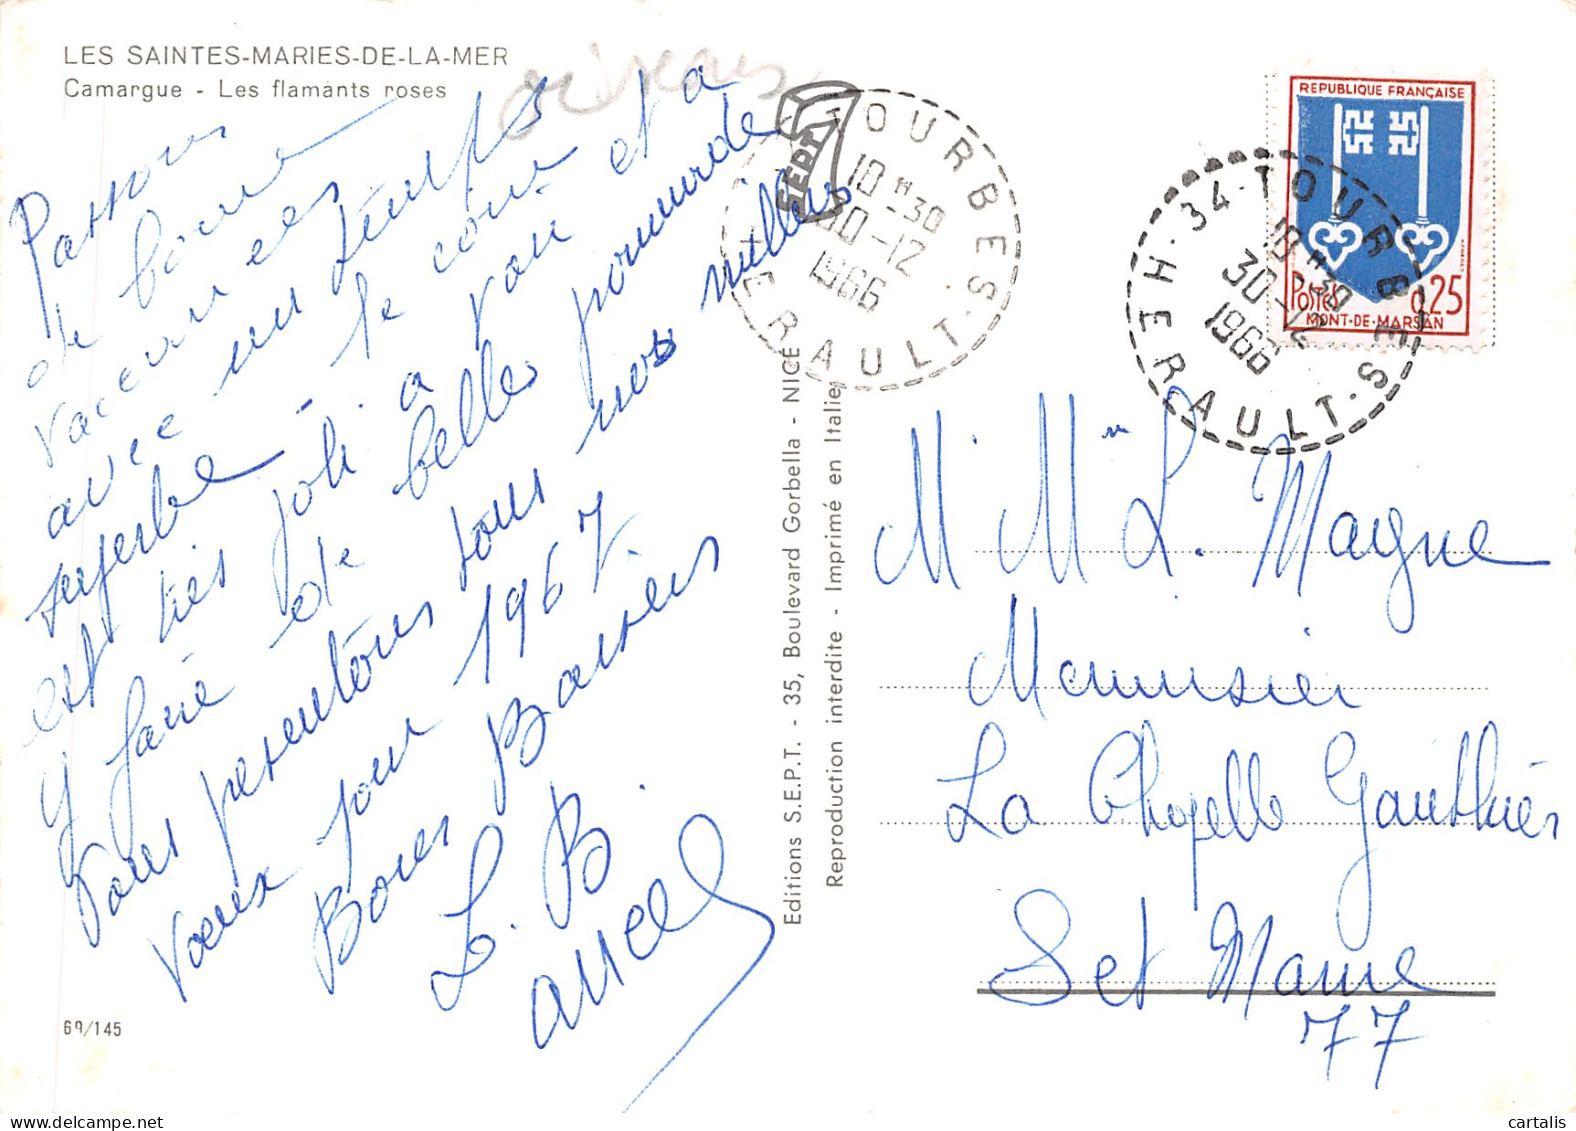 LES SAINTES-MARIES-DE-LA-MER
Camargue - Les flamants roses
oiseaux
Passons
de bonne
vacances
avec un temps
superbe - le coin et a
est très joli. a von
y faire de belles promenade
Tous presentons tous nos meilleurs
vœux pour 1967
Bons Baisers
L. B
SEPT
TOURBES
10 H 30
30-12
1966
HERAULT
Editions S.E.P.T. - 35, Boulevard Gorbella - NICE
Reproduction interdite - Imprimé en Italie
69/145
REPUBLIQUE FRANÇAISE
Postes 0,25
MONT-DE-MARSAN
34-TOURBES
18 H 30
30-12
1966
HERAULT
M. Mme L. Magne
Menuisier
La Chapelle Gauthier
Set Marne
77